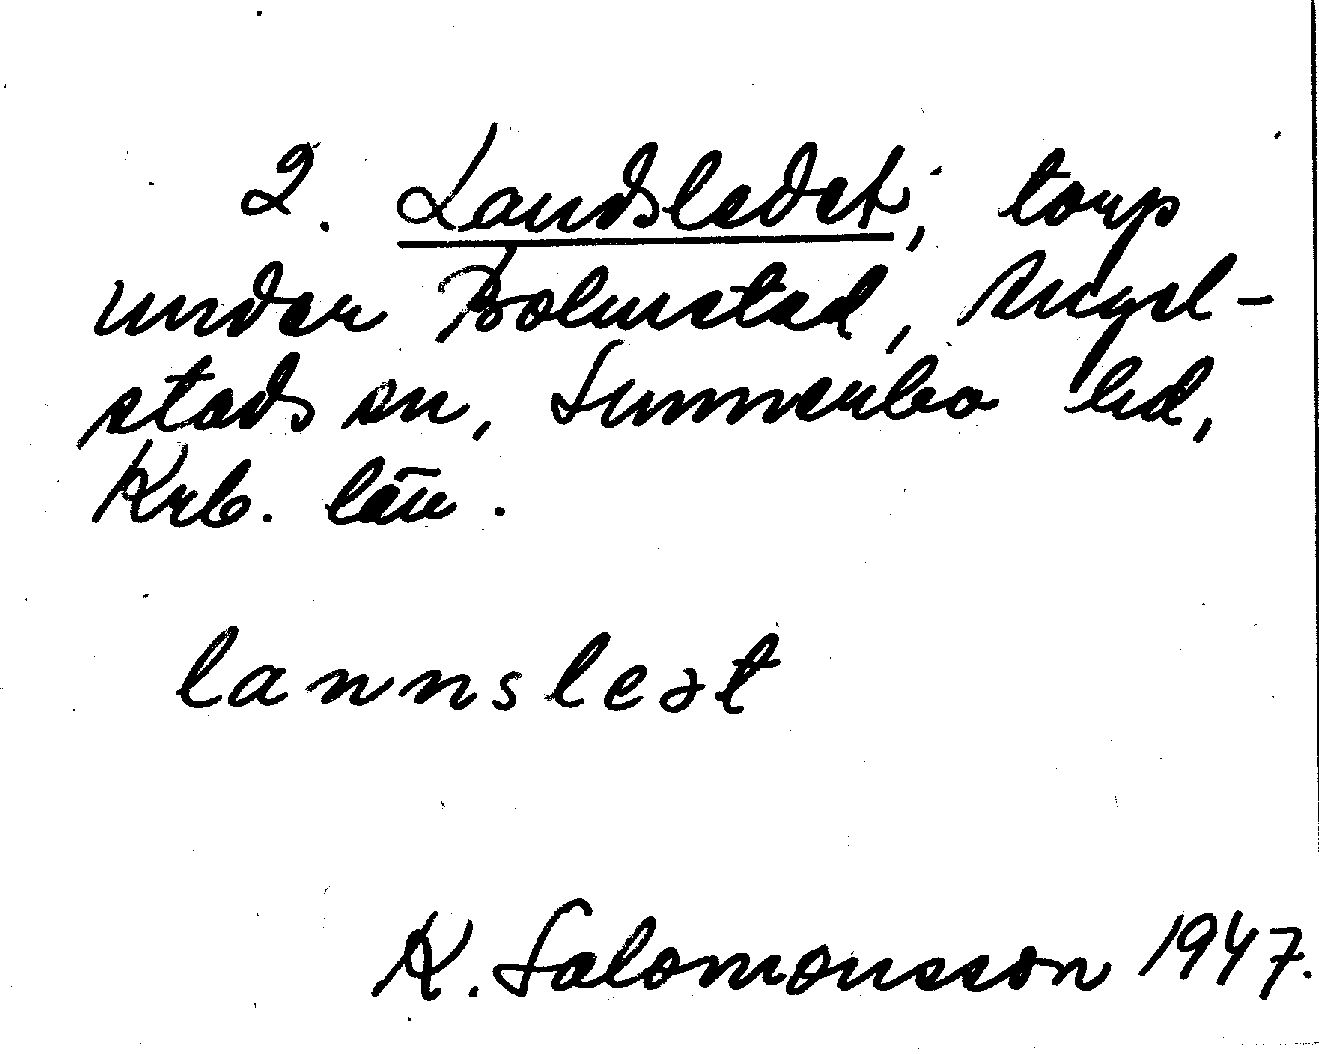 2. Landsledet, torp
under Bolmstad, Angel-
stads sn, Sunnerbo hd,
Krb. län.
lannsleət
K. Salomonsson 1947.